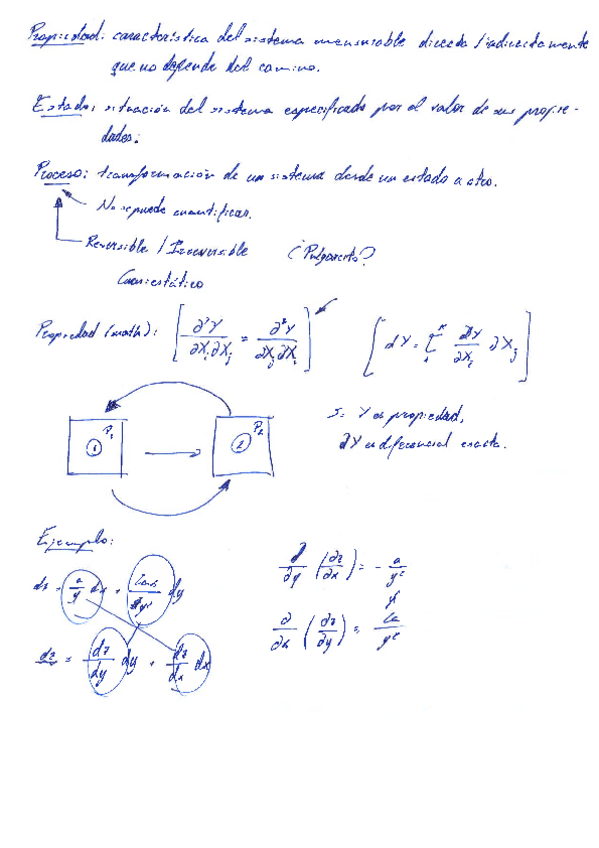 Propiedad: característica del sistema mensurable directa/indirectamente
que no depende del camino.
Estado: situación del sistema especificado por el valor de sus propie-
dades.
Proceso: transformación de un sistema desde un estado a otro.
No se puede cuantificar.
Reversible / Irreversible
Cuasiestático
Propiedad (math): [∂²Y/∂Xᵢ∂Xⱼ = ∂²Y/∂Xⱼ∂Xᵢ]
Si Y es propiedad,
dY es diferencial exacta.
1 P₁
2 P₂
Ejemplo:
dz = dz/dy dy + dz/dx dx
∂/∂y (∂z/∂x) = - a/y²
∂/∂x (∂z/∂y) =